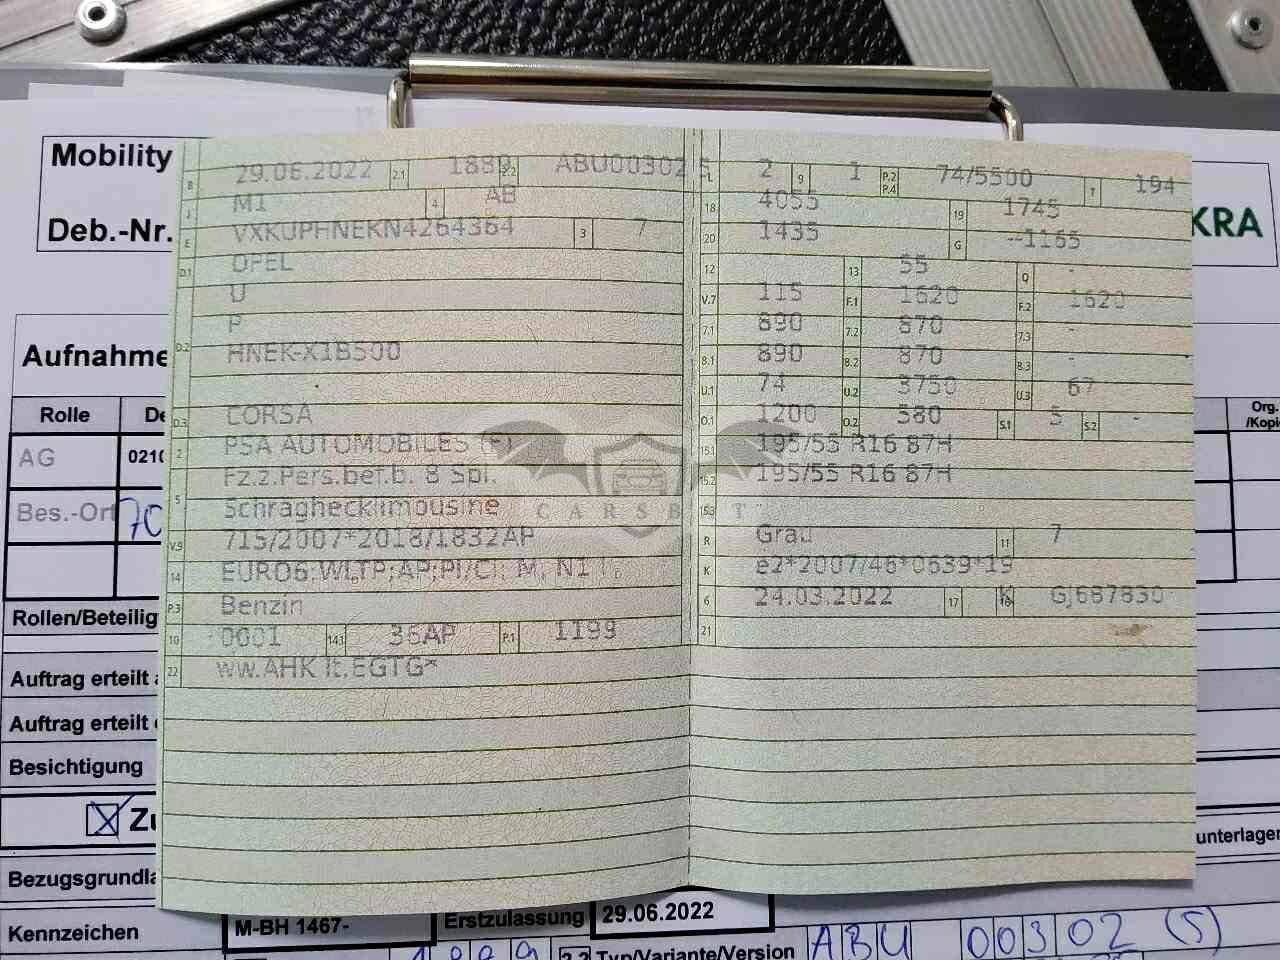 Mobility
Deb.-Nr.
KRA
Aufnahme
Rolle
AG
0210
Bes.-Ort
70
Rollen/Beteilig
Auftrag erteilt
Auftrag erteilt
Besichtigung
Zu
Bezugsgrundla
Kennzeichen
Org.
/Kopie
unterlagen
B 29.06.2022 2.1 1889 2.2 ABU00302 5
J M1 4 AB
E VXKUPHNEKN4264364 3 7
D.1 OPEL
U
D.2 P
HNEK-X1B500
D.3 CORSA
2 PSA AUTOMOBILES (F)
Fz.z.Pers.bef.b. 8 Spl.
5 Schräghecklimousine
V.9 715/2007*2018/1832AP
14 EURO6;WLTP;AP;PI/CI; M, N1 I
P.3 Benzin
10 0001 14.1 36AP P.1 1199
22 ww.AHK lt.EGTG*
L 2 9 1 P.2 P.4 74/5500 T 194
18 4055 19 1745
20 1435 G --1165
12 13 55 Q -
V.7 115 F.1 1620 F.2 1620
7.1 890 7.2 870 7.3 -
8.1 890 8.2 870 8.3 -
U.1 74 U.2 3750 U.3 67
O.1 1200 O.2 580 S.1 5 S.2 -
15.1 195/55 R16 87H
15.2 195/55 R16 87H
15.3
R Grau 11 7
K e2*2007/46*0639*19
6 24.03.2022 17 K 16 GJ687830
21
CARSB T
M-BH 1467-
Erstzulassung
29.06.2022
2.2 Typ/Variante/Version
ABU 00302 (5)